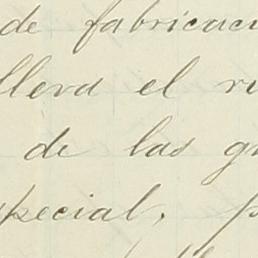 de fabricaci
lleva el
de las
special,